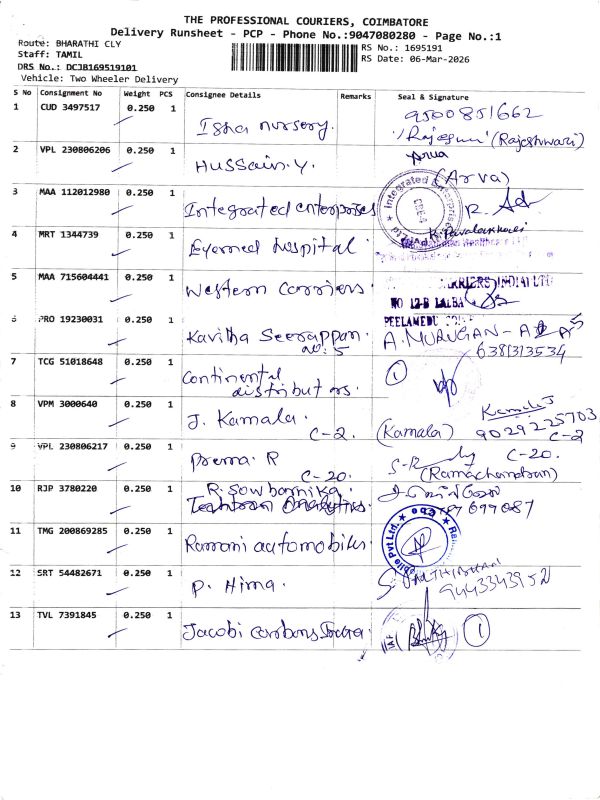 THE PROFESSIONAL COURIERS, COIMBATORE
Delivery Runsheet - PCP - Phone No.:9047080280 - Page No.:1
Route: BHARATHI CLY
RS No.: 1695191
Staff: TAMIL
RS Date: 06-Mar-2026
DRS No.: DCJB169519101
Vehicle: Two Wheeler Delivery
S No Consignment No Weight PCS Consignee Details Remarks Seal & Signature
1 CUD 3497517 0.250 1 Isha nursery. 9500851662
(Rajeshwari)
2 VPL 230806206 0.250 1 Hussain.Y. Arva
(Arva)
3 MAA 112012980 0.250 1 Integrated enterprises
4 MRT 1344739 0.250 1 Eyemed hospital
5 MAA 715604441 0.250 1 Western carriers. CARRIERS (INDIA) LTD
NO 12-B LALBA
PEELAMEDU
6 PRO 19230031 0.250 1 Kavitha Seerappan. A. MURUGAN
no. 5 6381313534
7 TCG 51018648 0.250 1 Continental distributors. 1
8 VPM 3000640 0.250 1 J. Kamala. Kamala J
C-2. (Kamala) 9029225703
C-2
9 VPL 230806217 0.250 1 Prema. R C-20.
C-20. (Ramachandran)
10 RJP 3780220 0.250 1 R. Sowbarnika.
11 TMG 200869285 0.250 1 Ramani automobiles
12 SRT 54482671 0.250 1 P. Hima. 9443343952
13 TVL 7391845 0.250 1 Jacobi carbons India. 1